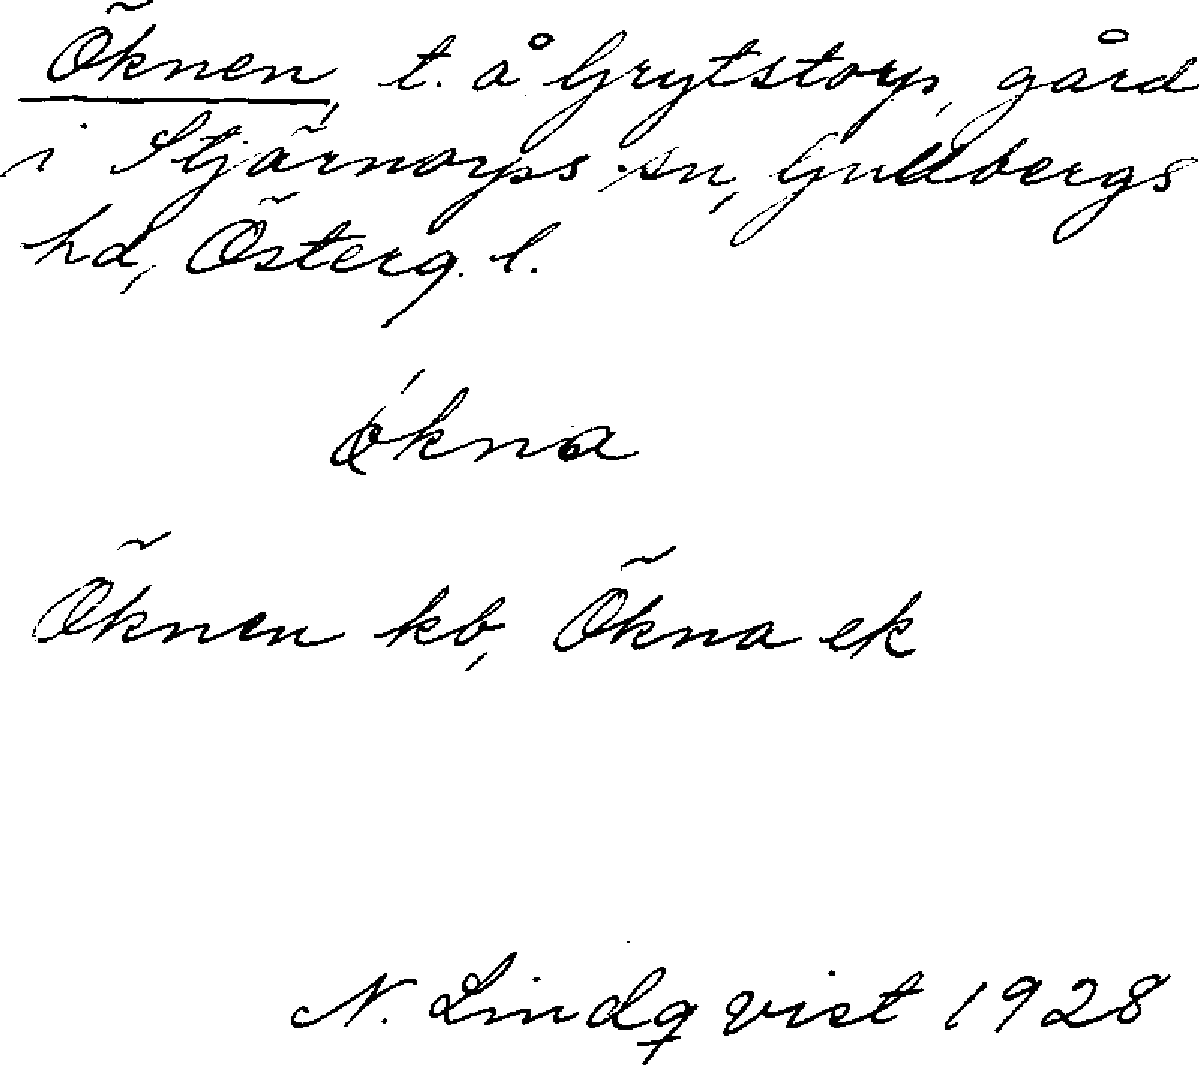 Öknen, t. å Grytstorp, gård
i Stjärnorps sn, Gullbergs
hd, Österg. l.
ǿkna
Öknen kb, Ökna ek
N. Lindqvist 1928